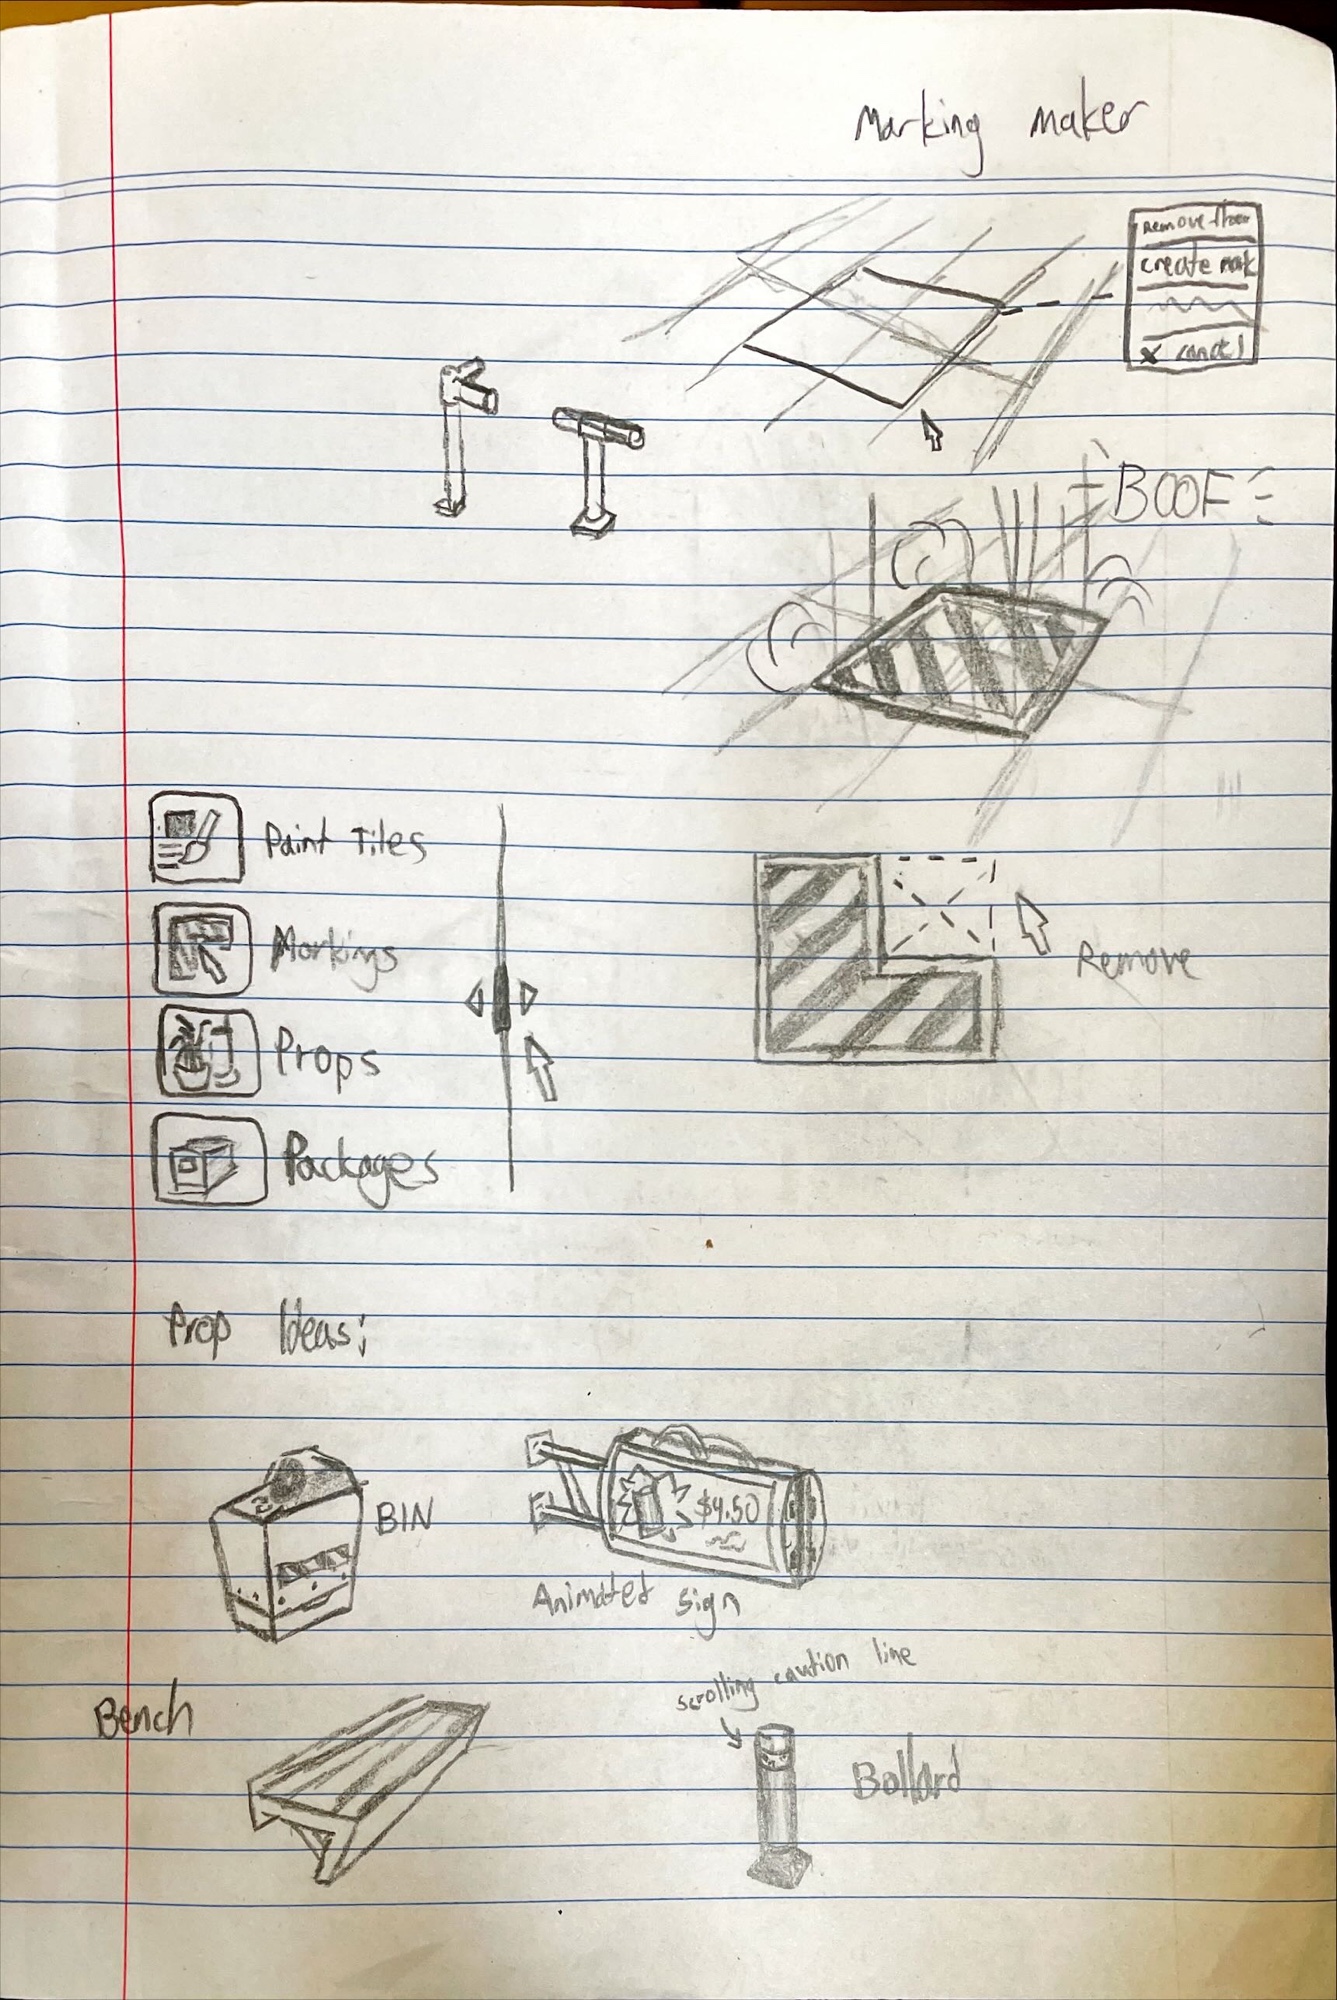 Marking maker
remove floor
create mark
x cancel
BOOF
Paint Tiles
Markings
Props
Packages
Remove
Prop Ideas:
BIN
$4.50
Animated sign
Bench
scrolling caution line
Bollard